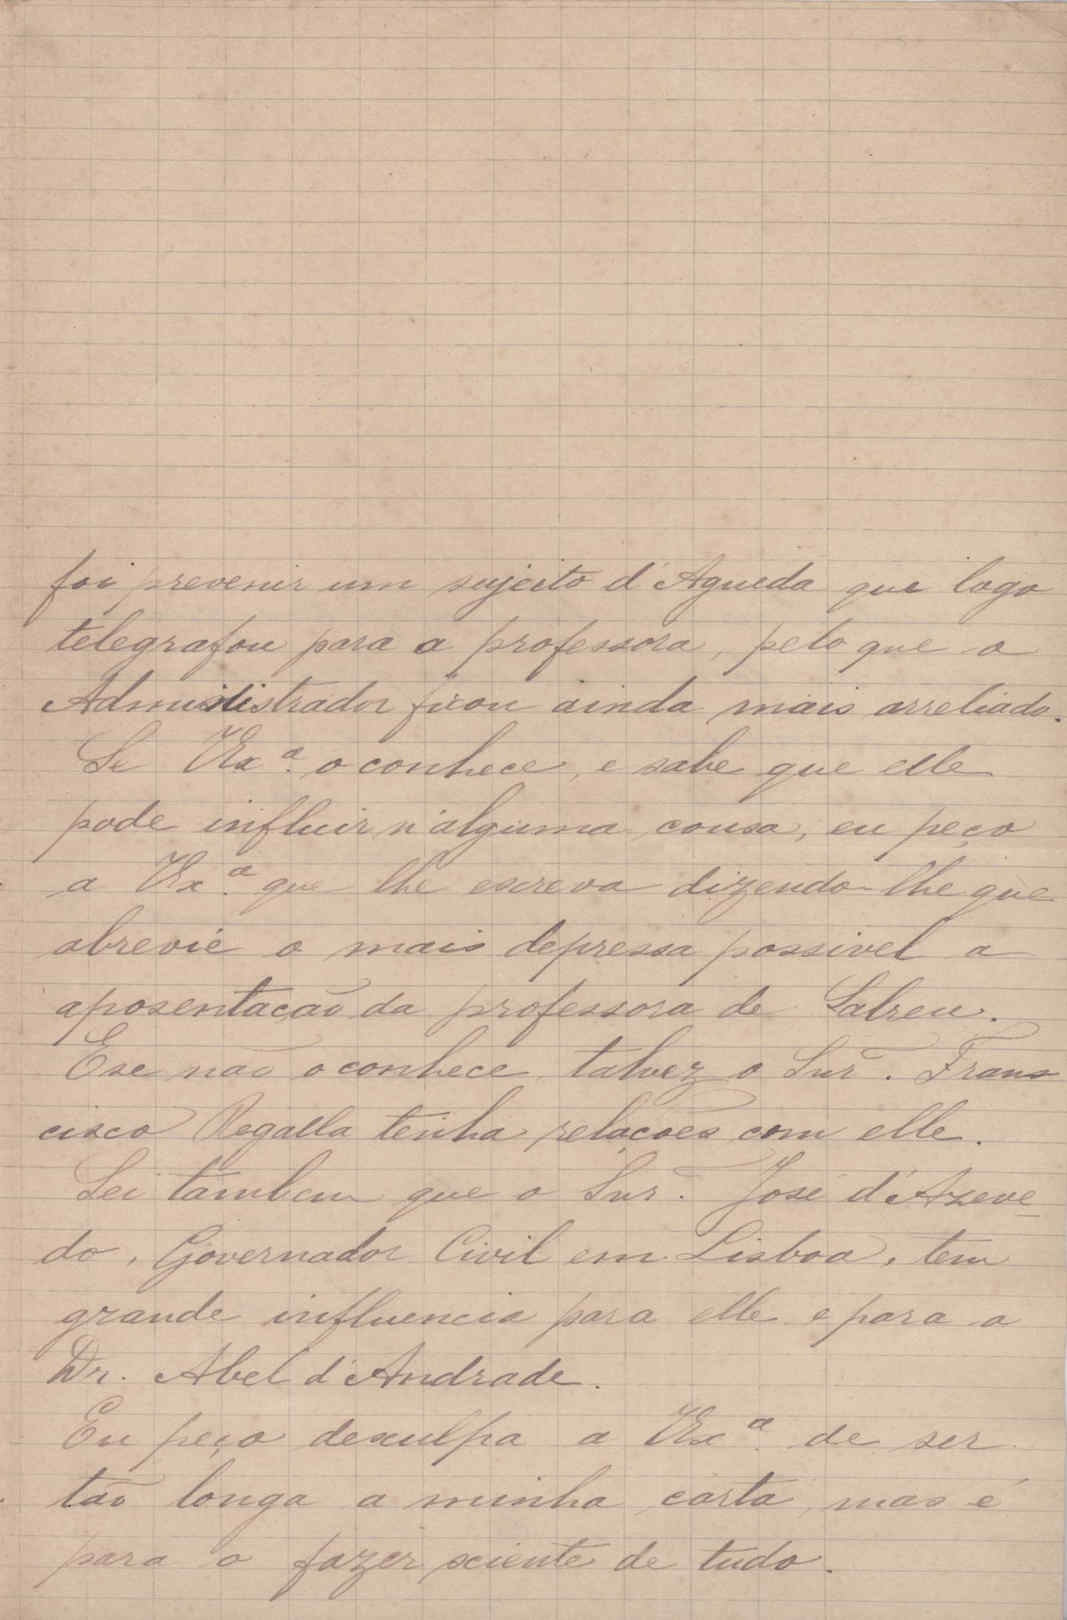 foi prevenir um sujeito d'Agueda que logo
telegrafou para a professora, pelo que o
Administrador ficou ainda mais arreliado.
Se VExª. o conhece, e sabe que elle
pode influir n'alguma cousa, eu peço
a VExª. que lhe escreva dizendo-lhe que
abrevie o mais depressa possivel a
aposentacão da professora de Salreu.
E se não o conhece talvez o Snr. Fran-
cisco Regalla tenha relacões com elle.
Sei tambem que o Snr. José d'Azeve-
do, Governador Civil em Lisboa, tem
grande influencia para elle e para o
Dr. Abel d'Andrade.
Eu peço desculpa a VExª. de ser
tão longa a minha carta, mas é
para o fazer sciente de tudo.